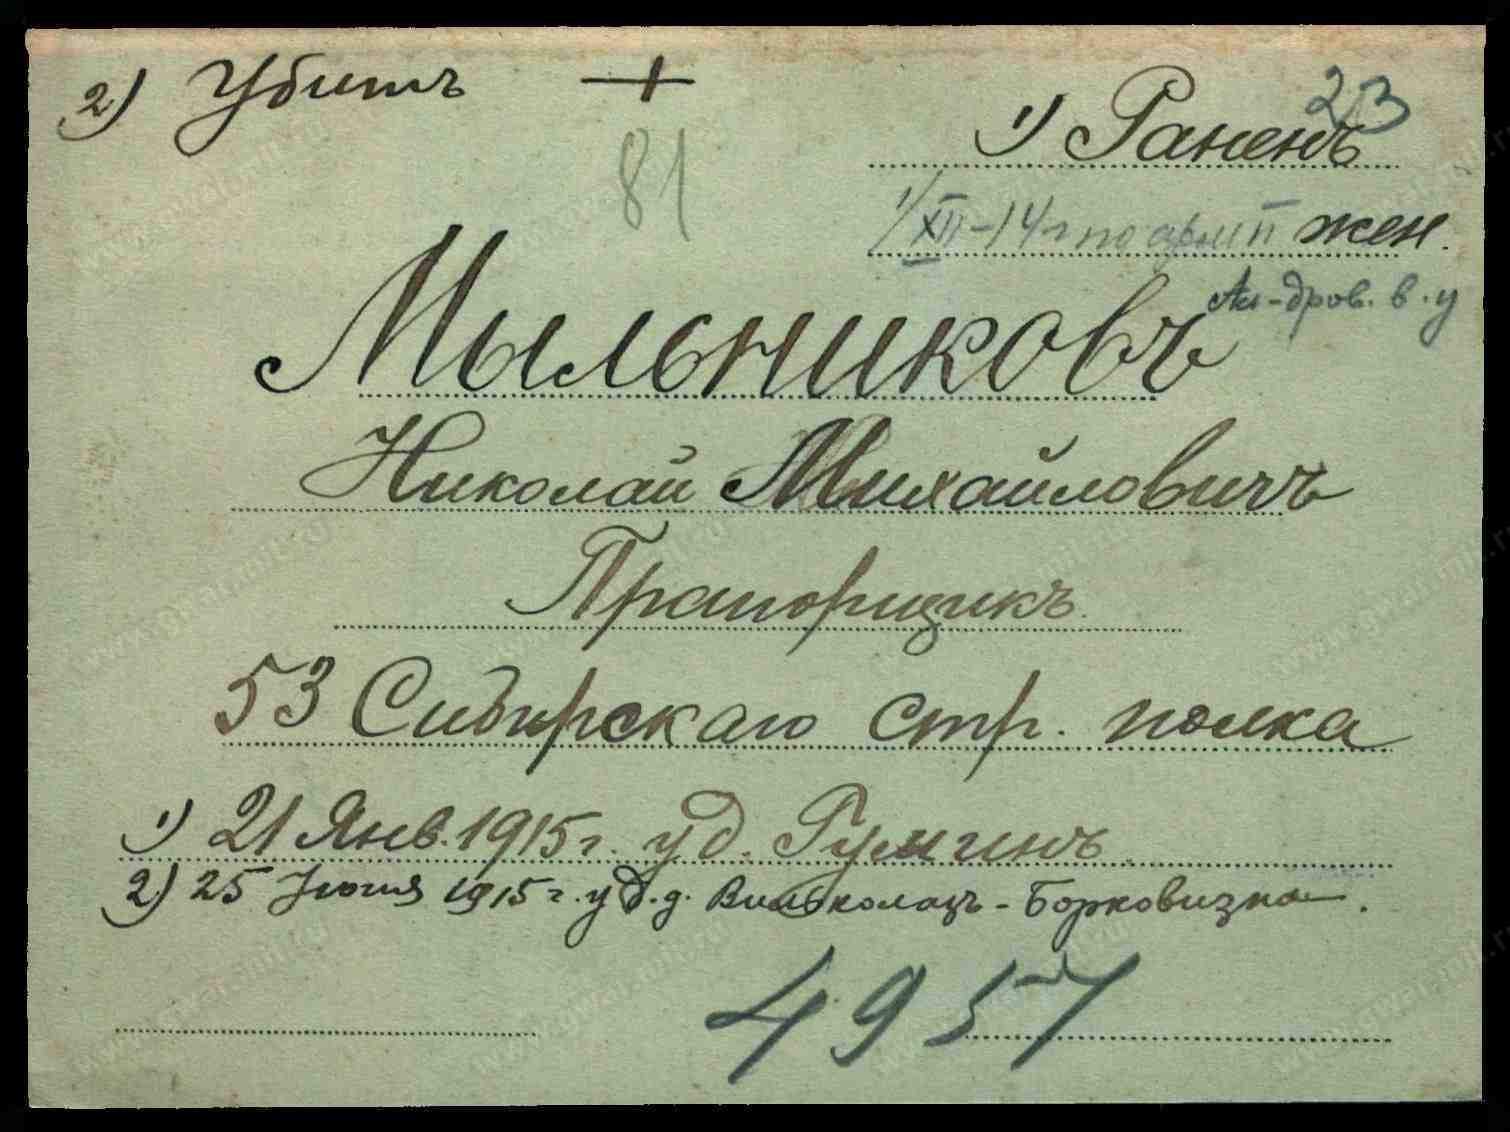 2) Убитъ +
23
1) Раненъ
81
1/XII-14 г по арм II жен.
Ал-дров. в. у
Мыльниковъ
Николай Михайловичъ
Прапорщикъ
53 Сибирскаго стр. полка
1) 21 Янв. 1915 г. у д. Гумминъ
2) 25 Июня 1915 г. у д.д. Вильколазъ - Борковизна.
4957